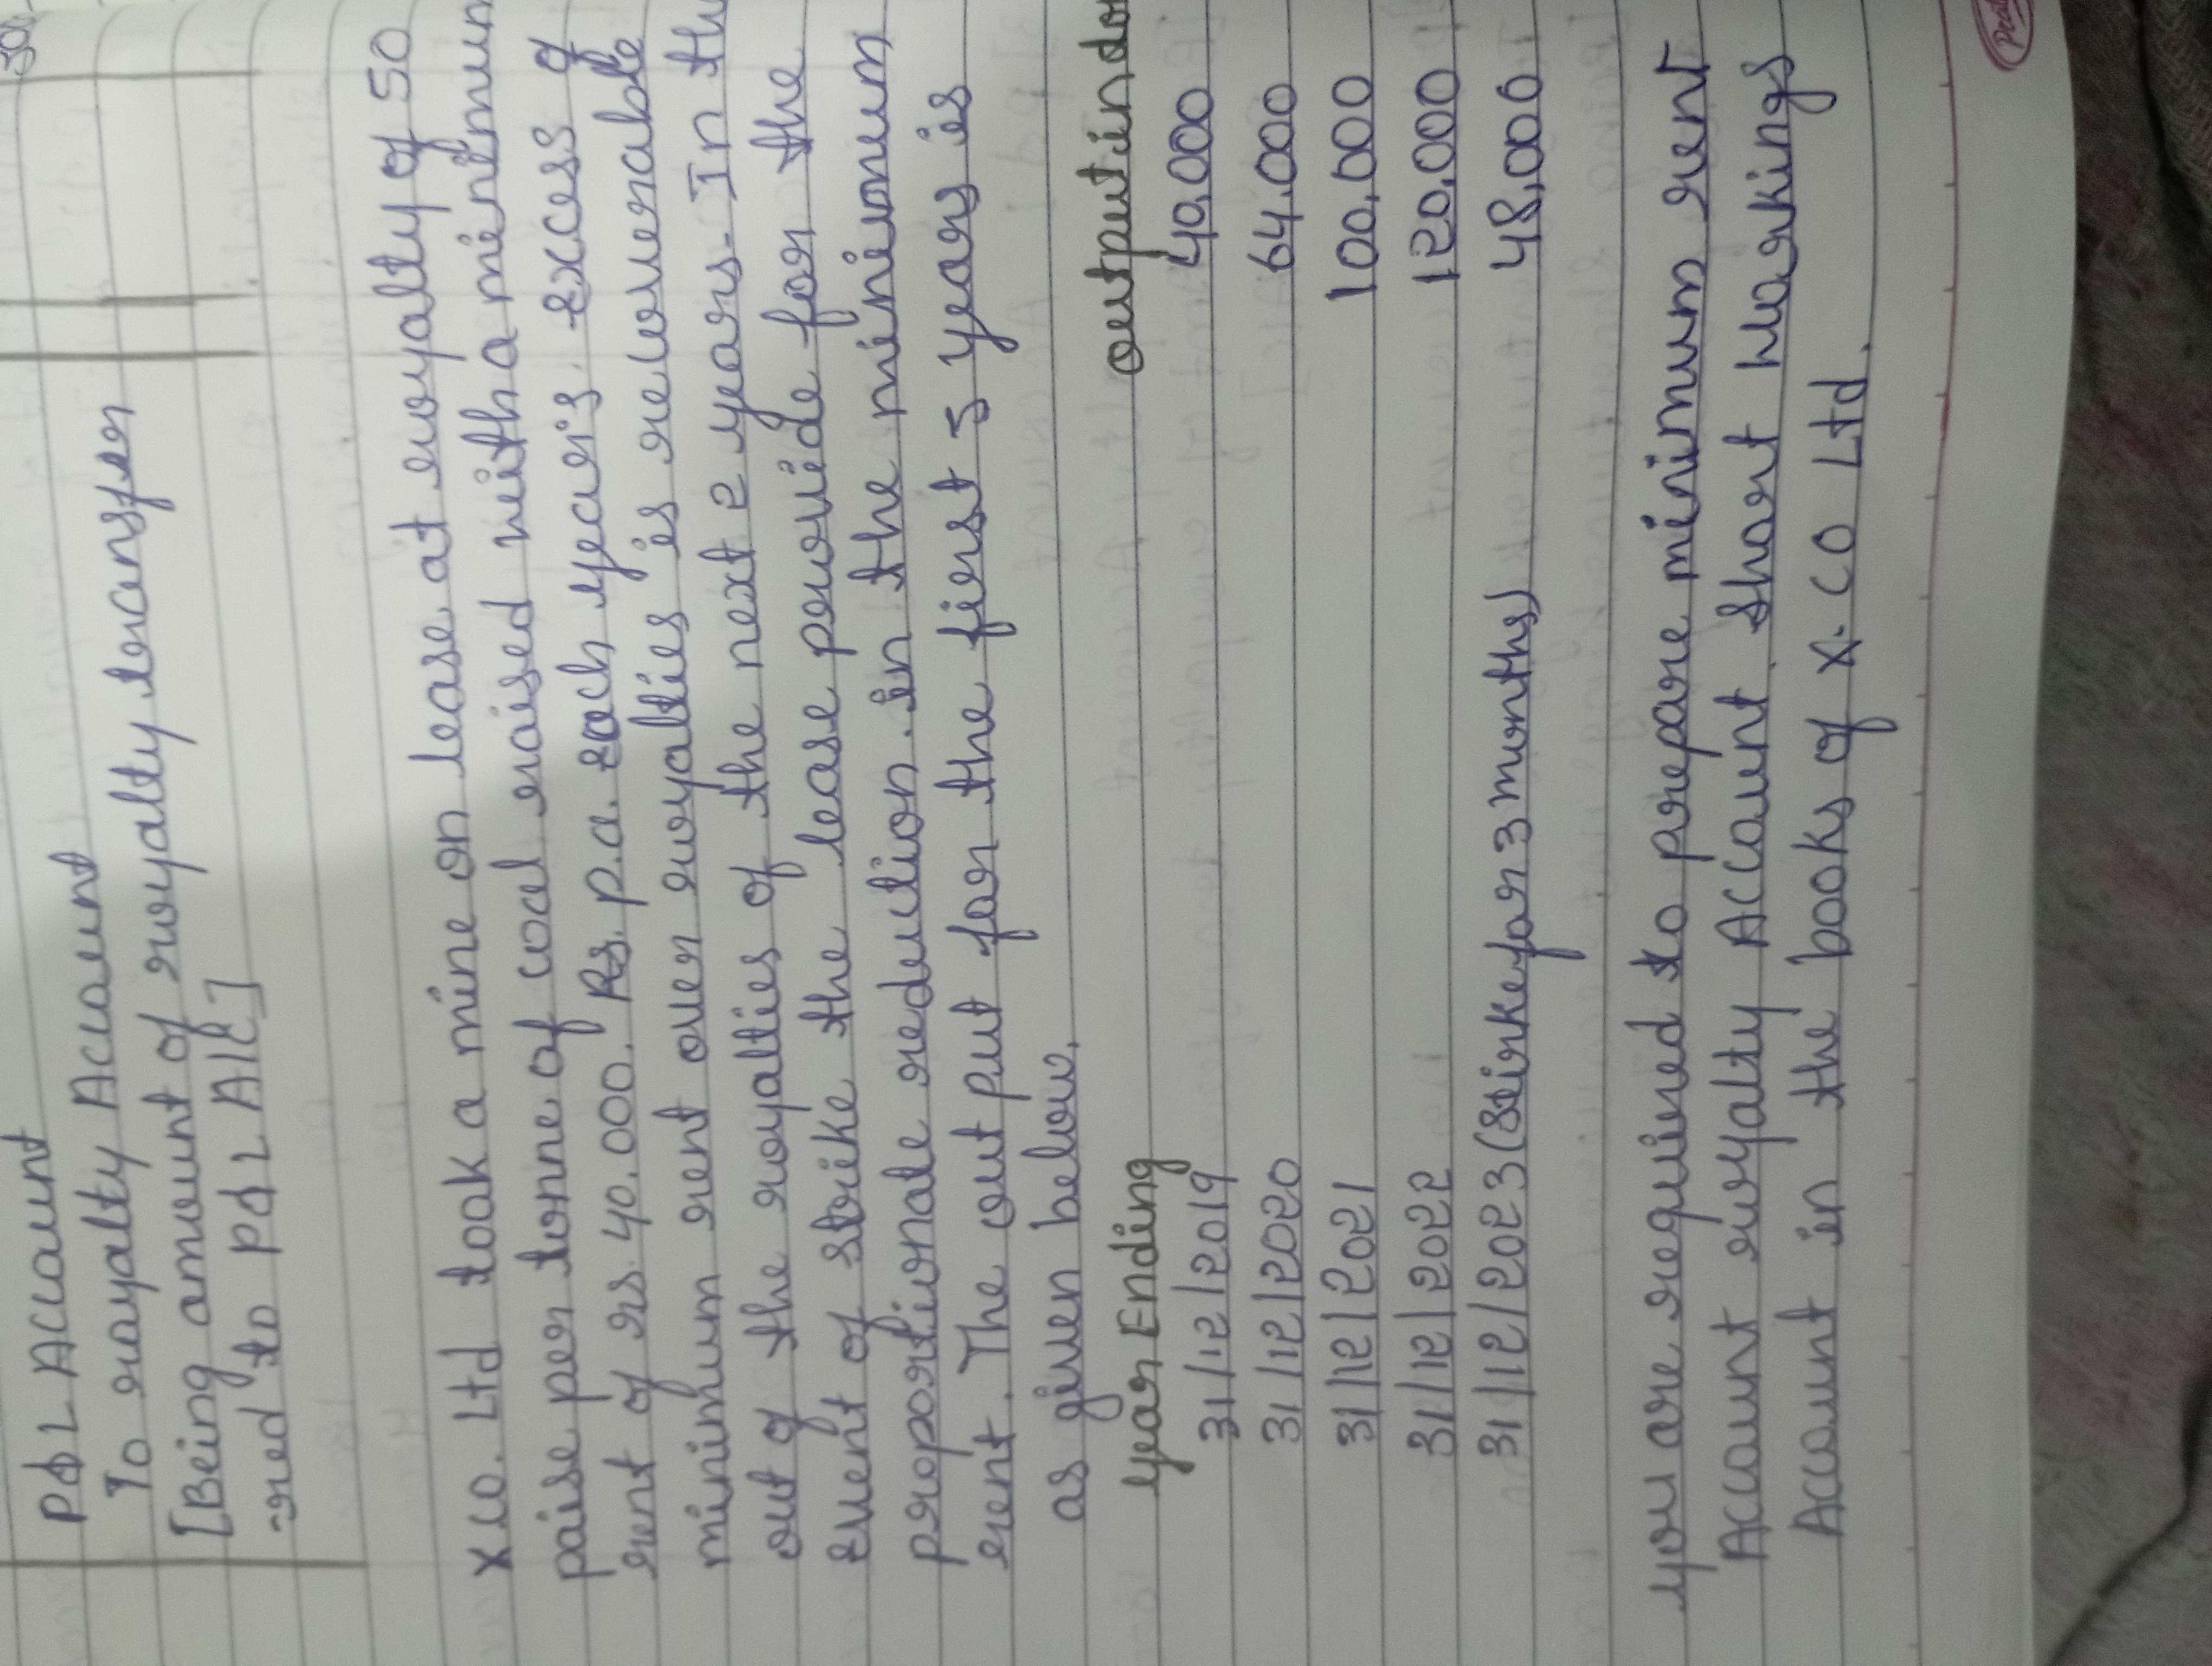 P&L Account
To royalty Account
[Being amount of royalty transfer
-red to P&L A/C]
X.CO. Ltd took a mine on lease at royalty of 50
paise per tonne of coal raised with a minimum
rent of rs. 40.000. Rs. p.a. each year's excess of
minimum rent over royalties is recoverable
out of the royalties of the next 2 years. In the
event of strike the lease provide for the
proportionate reduction. in the minimum
rent. The out put for the first 5 years is
as given below.
year Ending output in
31/12/2019 40,000
31/12/2020 64.000
31/12/2021 100,000
31/12/2022 120,000
31/12/2023 (Stirke for 3 months) 48,000
you are required to prepare minimum rent
Account royalty Account. Short Workings
Account in the books of X. CO Ltd.